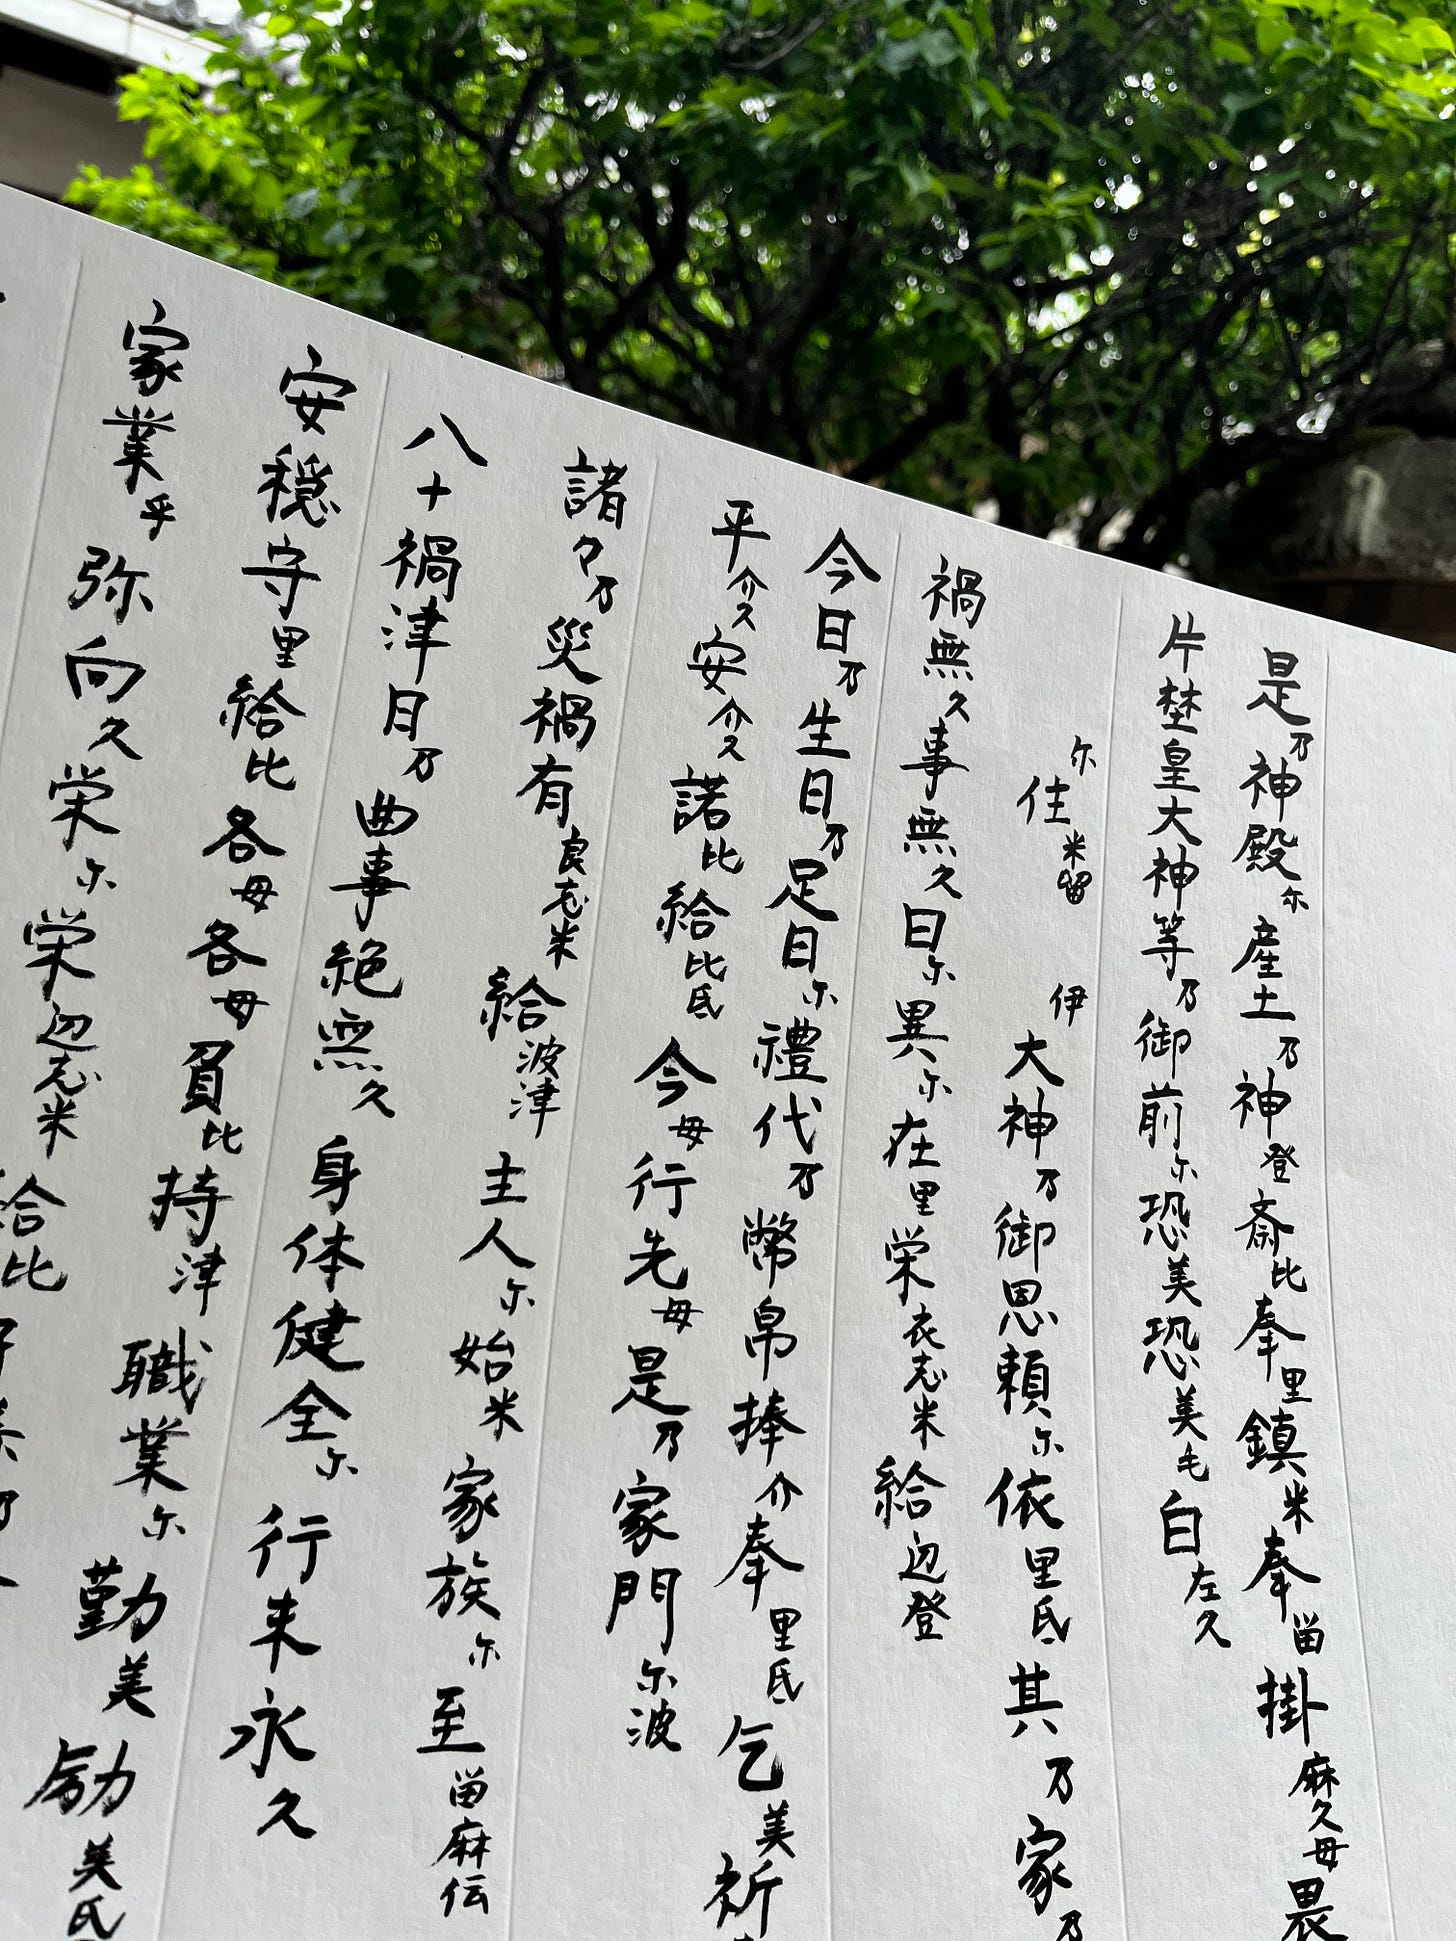 是乃神殿尓産土乃神登斎比奉里鎮米奉留掛麻久母畏
片埜皇大神等乃御前尓恐美恐美毛白左久
尓住米留 伊大神乃御恩頼尓依里氐其乃家乃
禍無久事無久日尓異尓在里栄衣志米給辺登
今日乃生日乃足日尓禮代乃幣帛捧介奉里氐乞美祈
平介久安介久諾比給比氐今母行先母是乃家門尓波
諸々乃災禍有良志米給波津主人尓始米家族尓至留麻伝
八十禍津日乃曲事絶無久身体健全尓行末永久
安穏守里給比各母各母負比持津職業尓勤美励美氐
家業乎弥向久栄尓栄辺志米給比